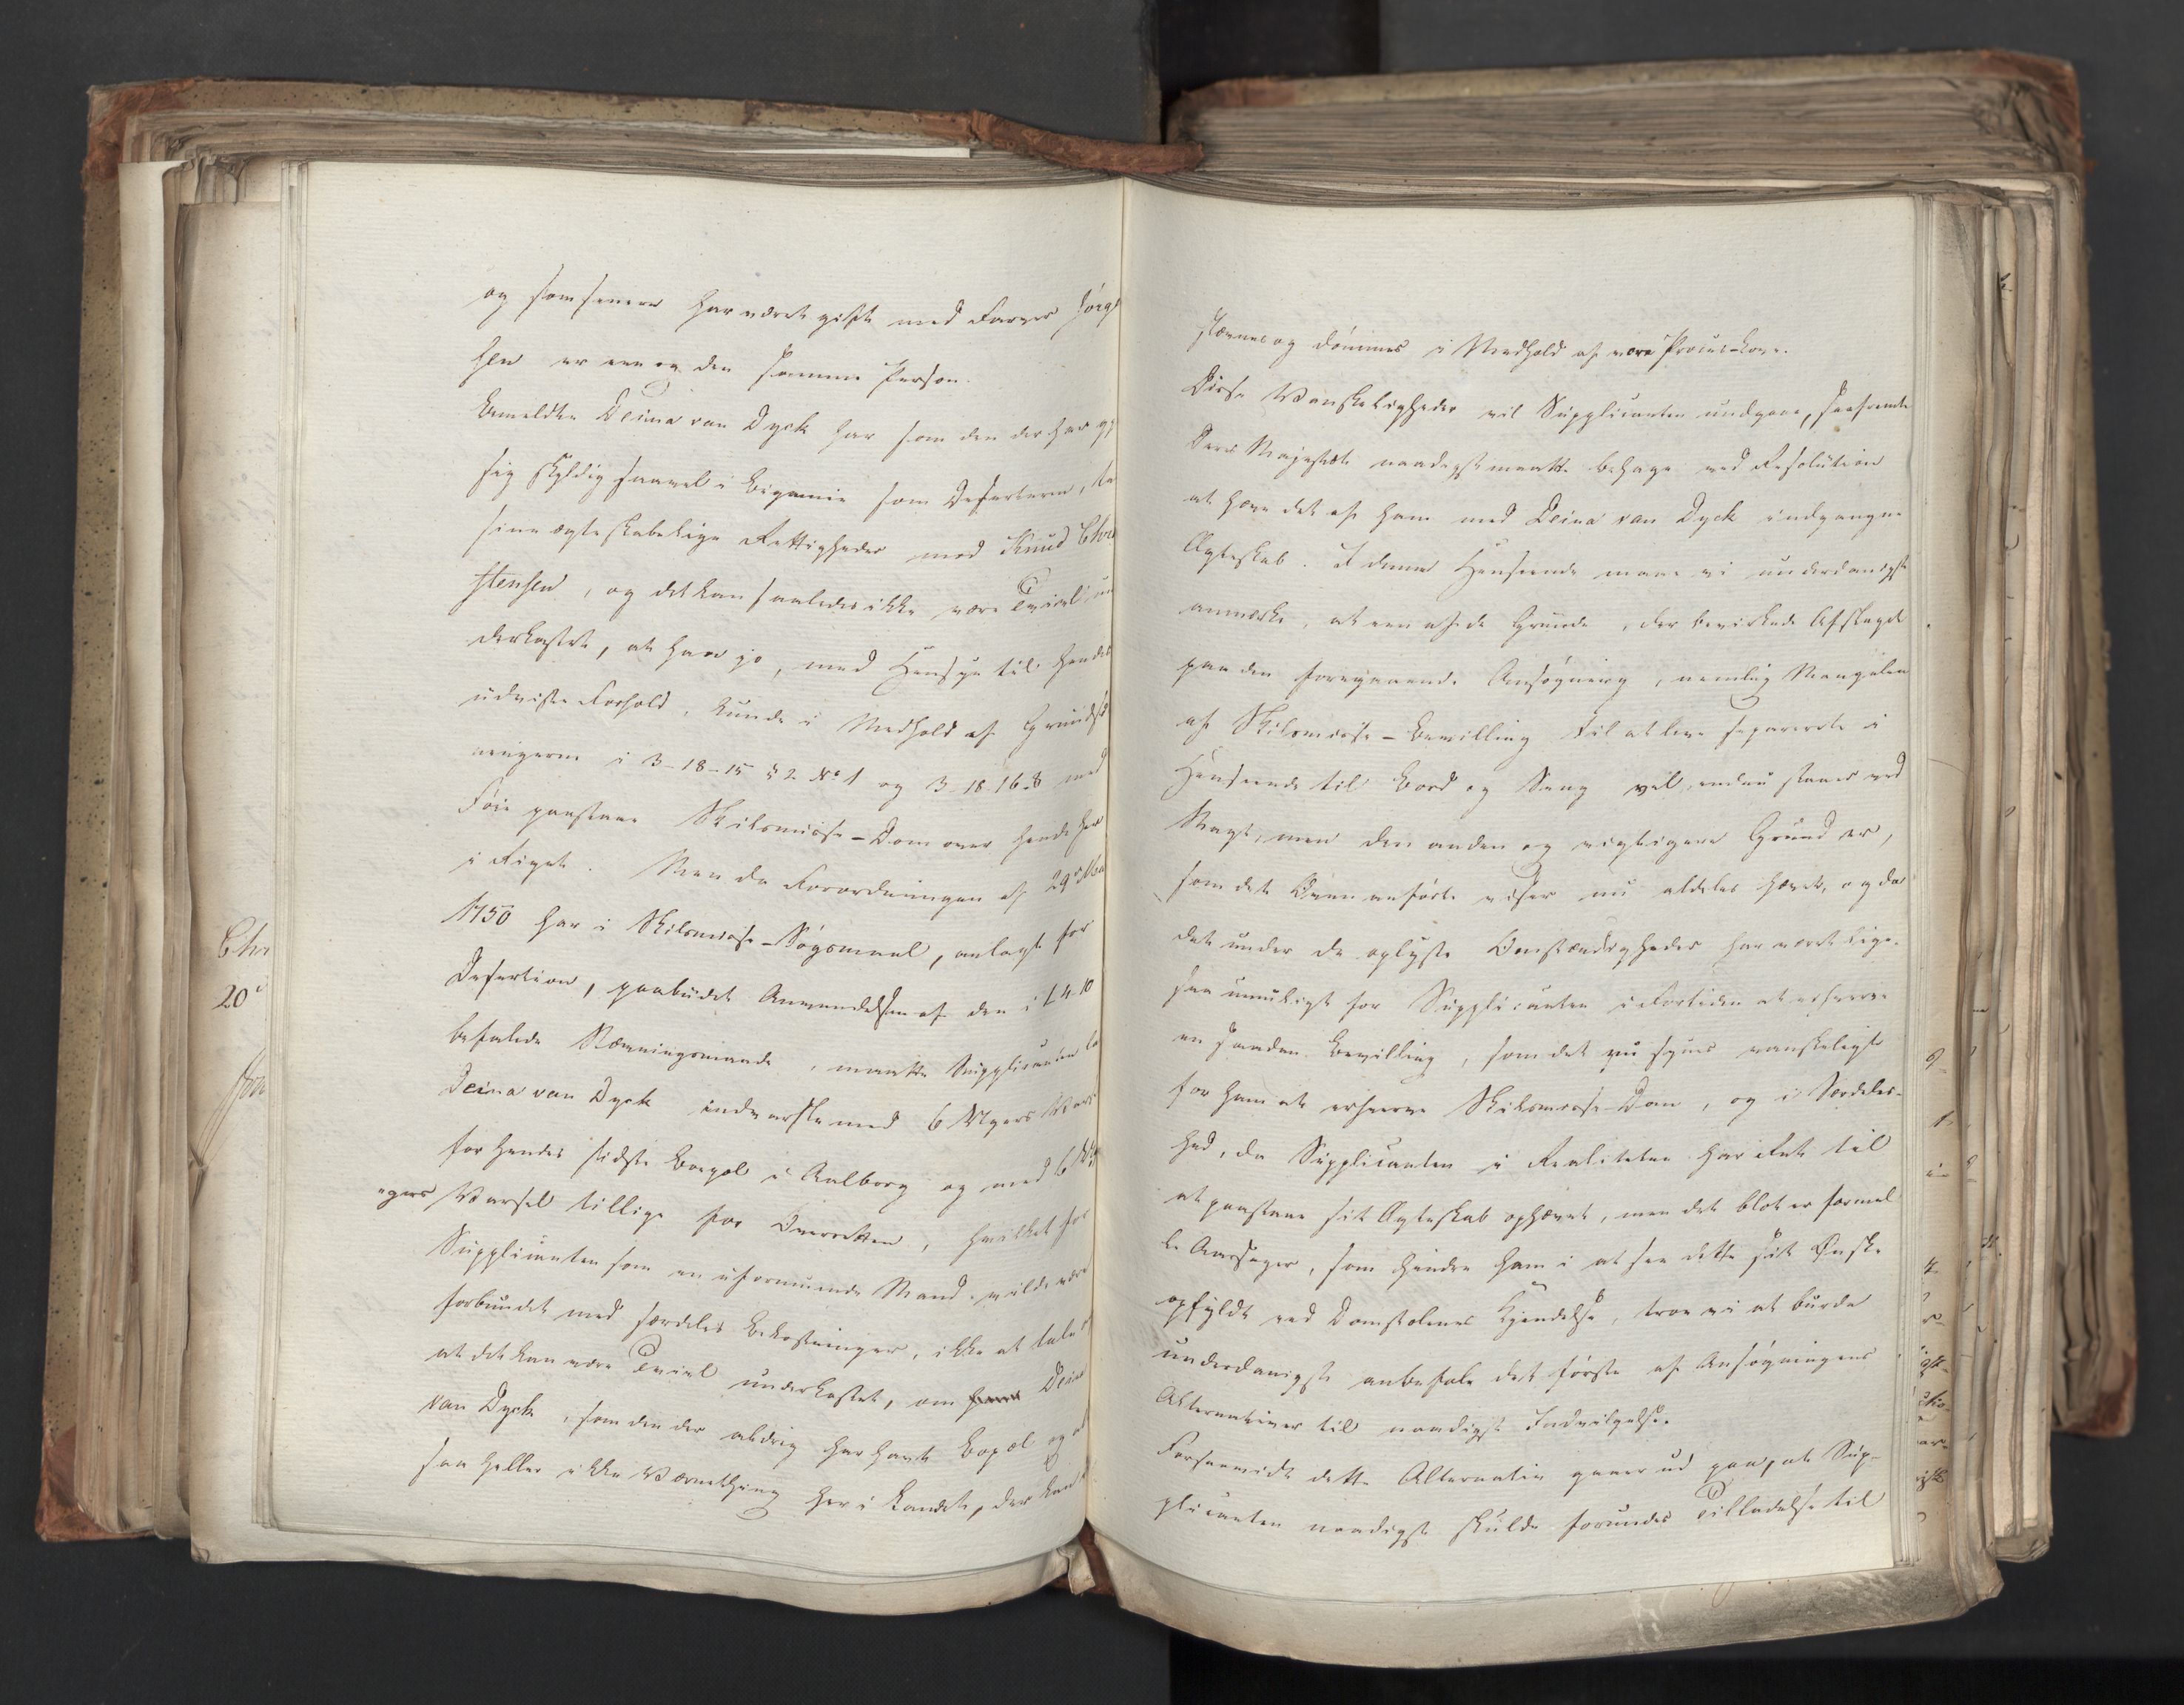 og som senere har været gift med Farver Jörg
sen er een og den samme Person.
Bemeldte Deina van Dyck har som den der har gj
sig skyldig saavel i Bigamie som Desertion, ta
sine ægteskabelige Rettigheder mod Knud Chri
stensen, og det kan saaledes ikke være Tvivl un
derkastet, at han jo, med Hensyn til hendes
udviste Forhold, kunde i Medhold af Grundsæt
ningerne i 3-18-15 § 2 No 1 og 3-18-16-8 med
Föie paastaae Skilsmisse-Dom over hende her
i Riget. Men da Forordningen af 29de Mai
1750 har i Skilsmisse-Sögsmaal, anlagt for
Desertion, paabudet Anvendelsen af den i 1-4-10
befalede Stævningsmaade, maatte Supplicanten
Deina van Dyck indvarsle med 6 Ugers Vars
for hendes sidste Bopæl i Aalborg og med 6
"gers Varsel tillige for Overretten, hvilket for
Supplicanten som en uformuende Mand vilde være
forbundet med særdeles Bekostninger, ikke at tale
at det kan være Tvivl underkastet, om Deina
van Dyck, som den der aldrig har havt Bopæl og
saa heller ikke Værnething her i Landet, der kan
Chr
20
stævnes og dömmes i Medhold af vore Proces-Love.
Disse Vanskeligheder vil Supplicanten undgaae, saafremt
Deres Majestæt naadigst maatte behage ved Resolution
at hæve det af ham med Deina van Dyck indgangne
Ægteskab. I denne Henseende maae vi underdanigst
anmærke, at een af de Grunde, der bevirkede Afslaget
paa den foregaaende Ansögning, nemlig Mangelen
af Skilsmisse-Bevilling til at leve separerede i
Henseende til Bord og Seng vel endnu staaer ved
Magt, men den anden og vigtigere Grund er,
som det Ovenanförte viser nu aldeles hævet, og da
det under de oplyste Omstændigheder har været lige-
saa umuligt for Supplicanten i Fortiden at erhverve
en saadan Bevilling, som det nu synes vanskeligt
for ham at erhverve Skilsmisse-Dom, og i Særdeles-
hed, da Supplicanten i Realiteten har Ret til
at paastaae sit Ægteskab ophævet, men det blot er formel
le Aarsager, som hindre ham i at see dette sit Önske
opfyldt ved Domstolenes Kjendelse, troe vi at burde
underdanigst anbefale det förste af Ansögningens
Alternativer til naadigst Indvilgelse.
Forsaavidt dette Alternativ gaaer ud paa, at Sup-
plicanten naadigst skulde forundes Tilladelse til